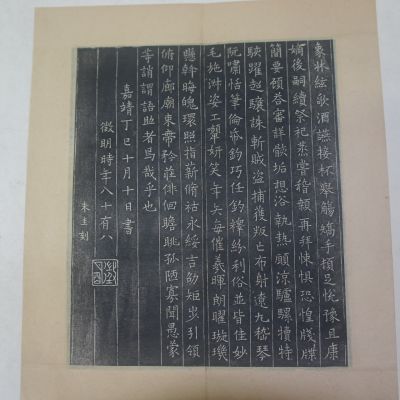 象牀絃歌酒讌接杯舉觴矯手頓足悅豫且康
嫡後嗣續祭祀蒸嘗稽顙再拜悚懼恐惶牋牒
簡要顧答審詳骸垢想浴執熱願涼驢騾犢特
駭躍超驤誅斬賊盜捕獲叛亡布射遼丸嵇琴
阮嘯恬筆倫紙鈞巧任釣釋紛利俗並皆佳妙
毛施淑姿工顰妍笑年矢每催羲暉朗曜璇璣
懸斡晦魄環照指薪脩祜永綏吉劭矩步引領
俯仰廊廟束帶矜莊徘徊瞻眺孤陋寡聞愚蒙
等誚謂語助者焉哉乎也
嘉靖丁巳十月十日書
徵明時年八十有八
朱圭刻